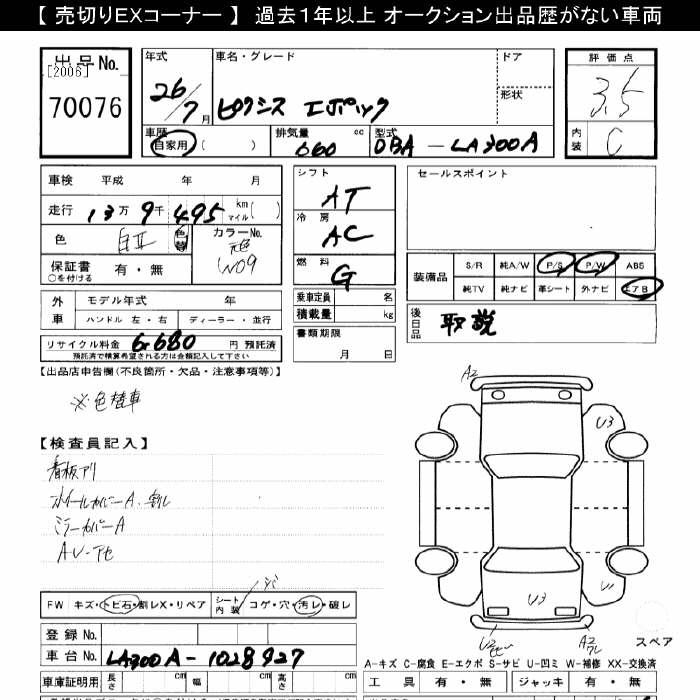 【 売切りEXコーナー 】 過去1年以上 オークション出品歴がない車両
出品No.
[2006]
70076
年式
26/7月
車名・グレード
ピクシス エポック
ドア
形状
車歴
自家用 ( )
排気量 cc
660
型式
DBA - LA300A
評価点
3.5
内装
C
車検 平成 年 月
走行 13万 9千 495 km マイル( )
色 白 色替
カラーNo. 元色 W09
保証書 ○を付ける 有・無
シフト
AT
冷房
AC
燃料
G
セールスポイント
装備品 S/R 純A/W P/S P/W ABS
純TV 純ナビ 革シート 外ナビ エアB
外車 モデル年式 年
ハンドル 左・右 ディーラー・並行
乗車定員 名
積載量 kg
後日品 取説
リサイクル料金 6680 円 預託済
預託済で精算希望される方は金額記入して下さい
書類期限
月 日
【出品店申告欄(不良箇所・欠品・注意事項等)】
※色替車
【検査員記入】
看板アリ
ホイールカバーA、割レ
ミラーカバーA
A2
U3
U3
U2
A2
スペア
FW キズ・トビ石・割レX・リペア シート内装 コゲ・穴・汚レ・破レ
登録No.
車台No. LA300A-1028927
A-キズ C-腐食 E-エクボ S-サビ U-凹ミ W-補修 XX-交換済
車庫証明用 長さ cm 幅 cm 高さ cm
工具 有・無 ジャッキ 有・無